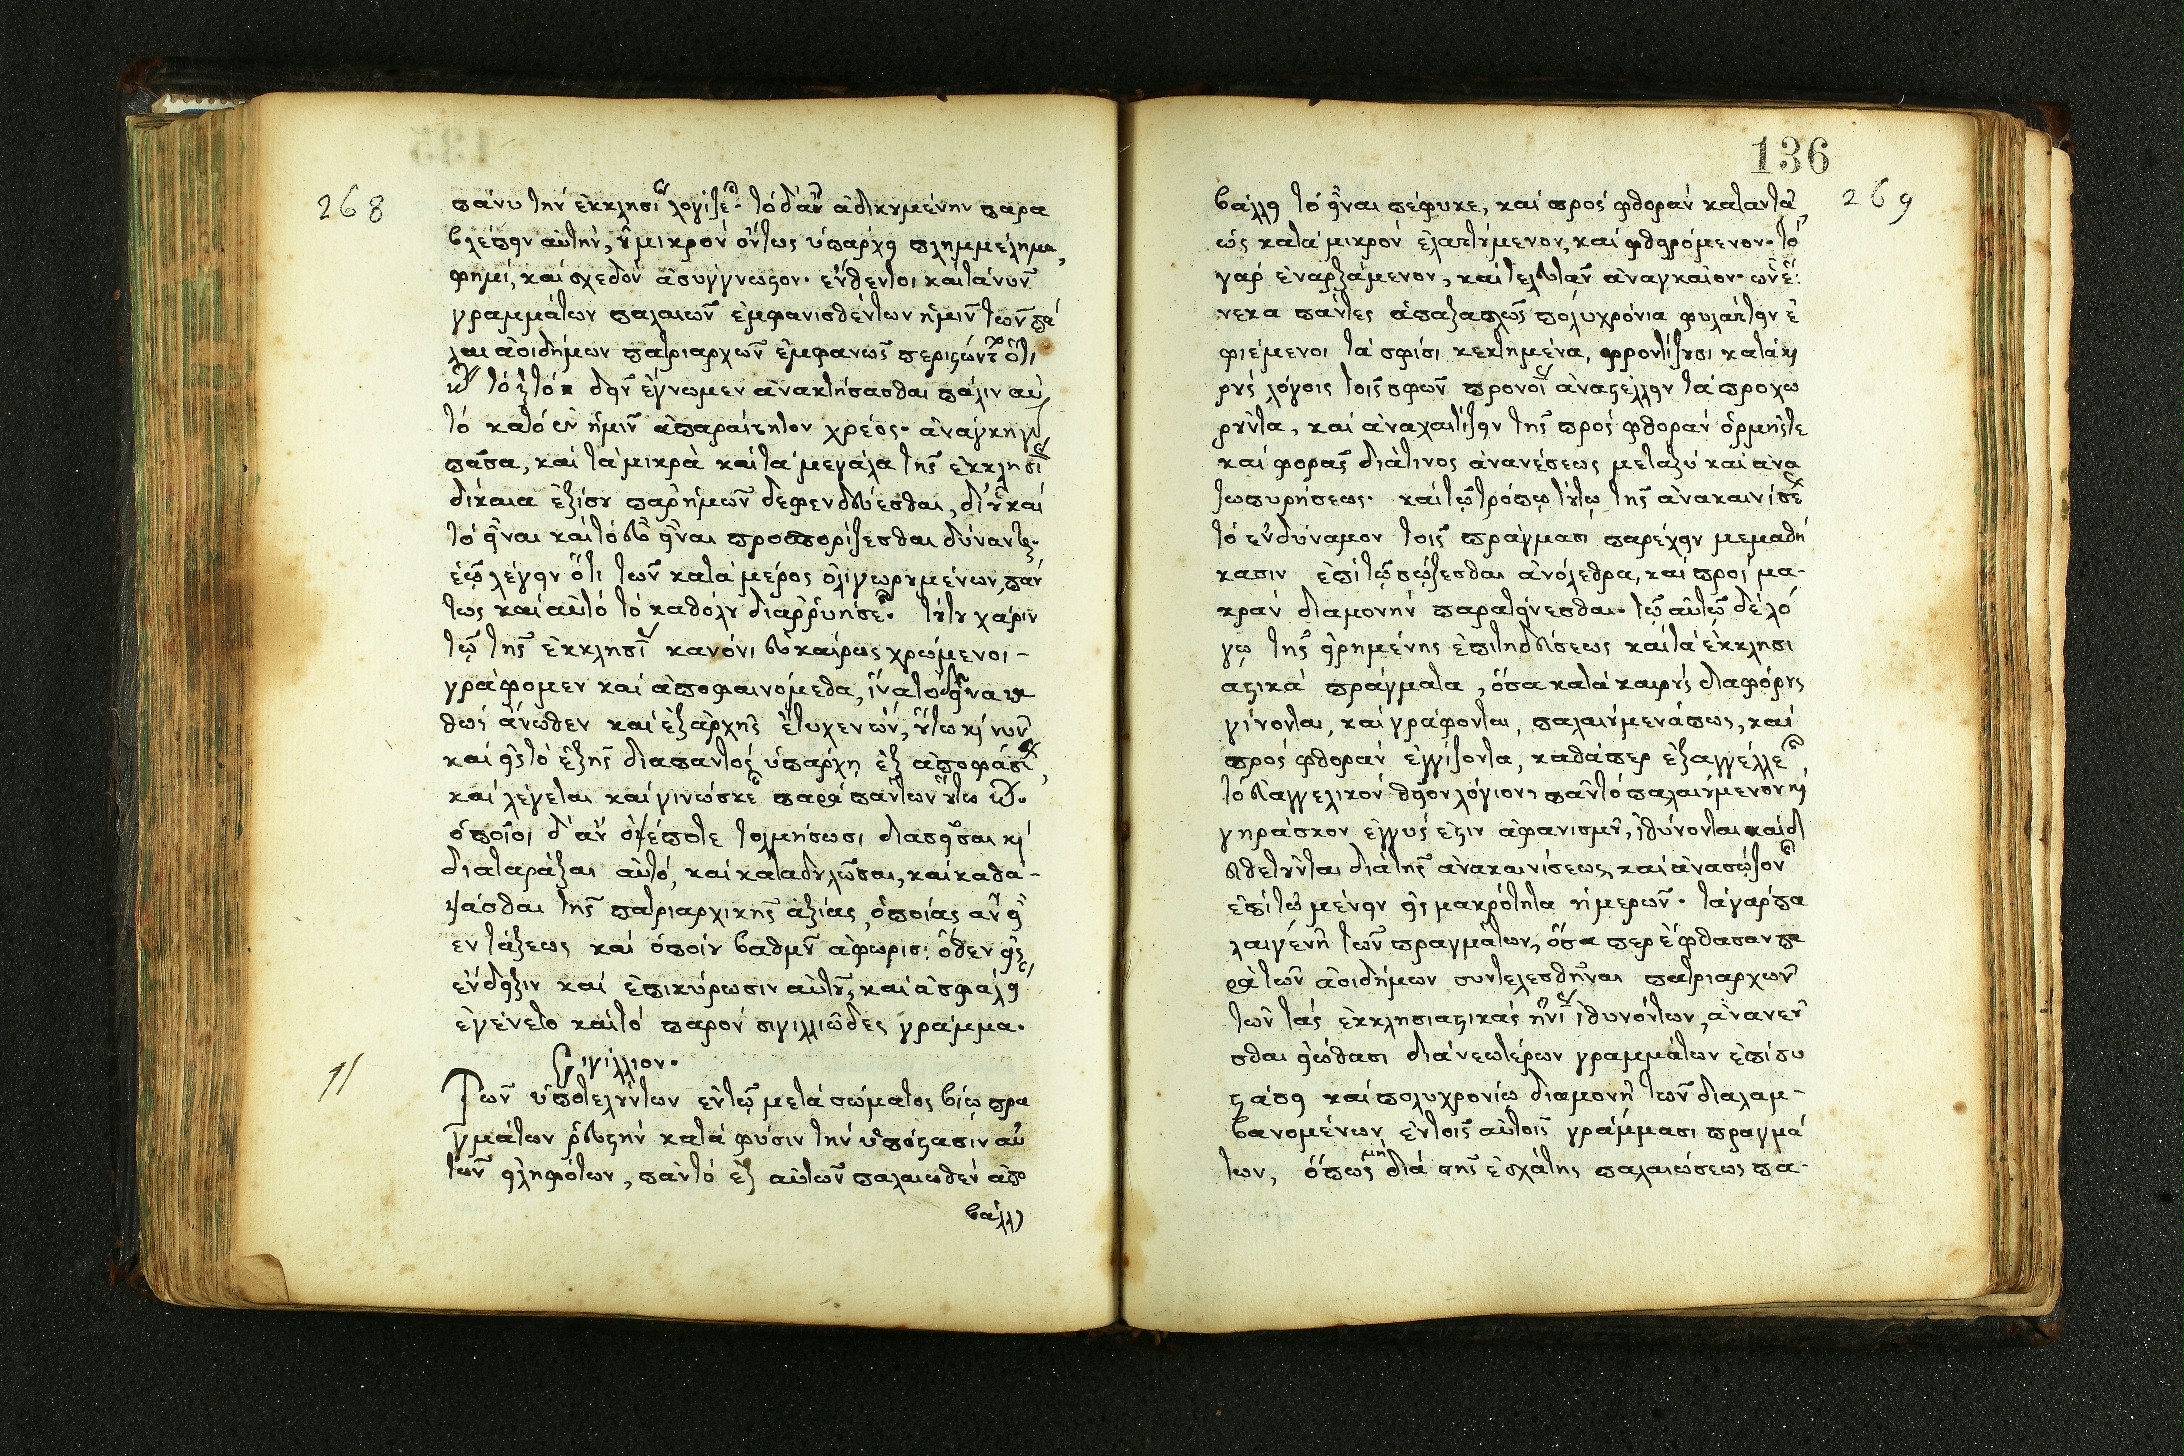 268
πάνυ τὴν ἐκκλησί λογίζε. τὸ δ' ἀδικουμένην παρα
βλέπειν αὐτὴν, οὐ μικρὸν ὄντως ὑπάρχει πλημμέλημα,
φημί, καὶ σχεδὸν ἀσυγγνωστον. ἔνθεντοι καὶ τανῦν
γραμμάτων παλαιῶν ἐμφανισθέντων ἡμῖν τῶν πά
λαι ἀοιδήμων πατριαρχῶν ἐμφανῶς περιστώντ ὅτι
δεῖν ἔγνωμεν ἀνακτήσασθαι πάλιν αὐ
τὸ κατὸ ἐν ἡμῖν ἀπαραίτητον χρέος. ἀνάγκη γ
πᾶσα, καὶ τὰ μικρὰ καὶ τὰ μεγάλα τῆς ἐκκλησί
δίκαια ἐξίσου παρ' ἡμῶν δεφενδεύεσθαι, δι' οὗ καὶ
τὸ εἶναι καὶ τὸ εὖ εἶναι προσπορίζεσθαι δύναντ.
ἐῶ λέγειν ὅτι τῶν κατὰ μέρος ὀλιγωρουμένων, πάν
τως καὶ αὐτὸ τὸ καθόλου διαῤῥυήσε. τούτου χάριν
τῷ τῆς ἐκκλησί κανόνι εὐκαίρως χρώμενοι -
γράφομεν καὶ ἀποφαινόμεθα, ἵνα τὸ
θὼς ἄνωθεν καὶ ἐξαρχῆς ἔτυχεν ὢν, οὕτω κὶ νῦν
καὶ εἰς τὸ ἑξῆς διαπαντὸς ὑπάρχῃ ἐξ ἀποφάσ,
καὶ λέγεται καὶ γινώσκε παρὰ πάντων οὕτω
ὁποῖοι δ' ἂν ὀψέποτε τολμήσωσι διασεῖσαι κὶ
διαταράξαι αὐτό, καὶ καταδηλῶσαι, καὶ καθά-
ψάσθαι τῆς πατριαρχικῆς ἀξίας, ὁποίας ἂν εἶ
εν τάξεως καὶ ὁποίου βαθμοῦ ἀφωρισ: ὅθεν εἰς
ἔνδειξιν καὶ ἐπικύρωσιν αὐτοῦ, καὶ ἀσφαλει
ἐγένετο καὶ τὸ παρὸν σιγιλλιῶδες γράμμα.
Σιγίλλιον.
Τῶν ὑποτελούντων ἐν τῷ μετὰ σώματος βίῳ πρα
γμάτων ῥευστὴν κατὰ φύσιν τὴν ὑπόστασιν αὐ
τῶν εἰληφότων, πᾶν τὸ ἐξ αὐτῶν παλαιωθὲν ἀπο
βάλλει
136
269
βάλλει τὸ εἶναι πέφυκε, καὶ πρὸς φθορὰν καταντᾶ,
ὡς κατὰ μικρὸν ἐλαττούμενον, καὶ φθειρόμενον. τὸ
γὰρ ἐναρξάμενον, καὶ τελευτᾶν ἀναγκαῖον. ὧν ἕ:
νεκα πάντες ἁπαξαπλῶς πολυχρόνια φυλάττειν ἐ
φιέμενοι τὰ σφίσι κεκτημένα, φροντίζουσι κατὰ κ
ροὺς λόγοις τοῖς σφῶν προνοί ἀναστέλλειν τὰ προχω
ροῦντα, καὶ ἀναχαιτίζειν τῆς πρὸς φθορὰν ὁρμῆς τε
καὶ φορᾶς διά τινος ἀνανεώσεως μεταξὺ καὶ ἀνα
ζωπυρήσεως. καὶ τῷ τρόπῳ τούτῳ τῆς ἀνακαινίσ
τὸ ἐνδύναμον τοῖς πράγμασι παρέχειν μεμαθή
κασιν ἐπὶ τῷ σῴζεσθαι ἀνόλεθρα, καὶ πρὸς μα-
κρὰν διαμονὴν παρατείνεσθαι. τῷ αὐτῷ δὲ λό
γῳ τῆς εἰρημένης ἐπιτηδεύσεως καὶ τὰ ἐκκλησι
αστικὰ πράγματα, ὅσα κατὰ καιροὺς διαφόρους
γίνονται, καὶ γράφονται, παλαιούμενά πως, καὶ
πρὸς φθορὰν ἐγγίζοντα, καθάπερ ἐξαγγέλλε
τὸ εὐαγγελικὸν θεῖον λόγιον, πᾶν τὸ παλαιούμενον κὶ
γηράσκον ἐγγύς ἐστιν ἀφανισμοῦ, ἰθύνονται καὶ δι
ευθετοῦνται διὰ τῆς ἀνακαινίσεως, καὶ ἀνασώζον
ἐπὶ τῷ μένειν εἰς μακρότητα ἡμερῶν. τὰ γὰρ πα
λαιγένῆ τῶν πραγμάτων, ὅσα περ ἔφθασαν πα
ρὰ τῶν ἀοιδήμων συντελεσθῆναι πατριαρχῶν
τῶν τὰς ἐκκλησιαστικὰς ἡνί ἰθυνόντων, ἀνανεοῦ
σθαι εἰώθασι διὰ νεωτέρων γραμμάτων ἐπὶ συ
στάσει καὶ πολυχρονίῳ διαμονῇ τῶν διαλαμ-
βανομένων ἐν τοῖς αὐτοῖς γράμμασι πραγμά
των, ὅπως μὴ διὰ τῆς ἐσχάτης παλαιώσεως πα-